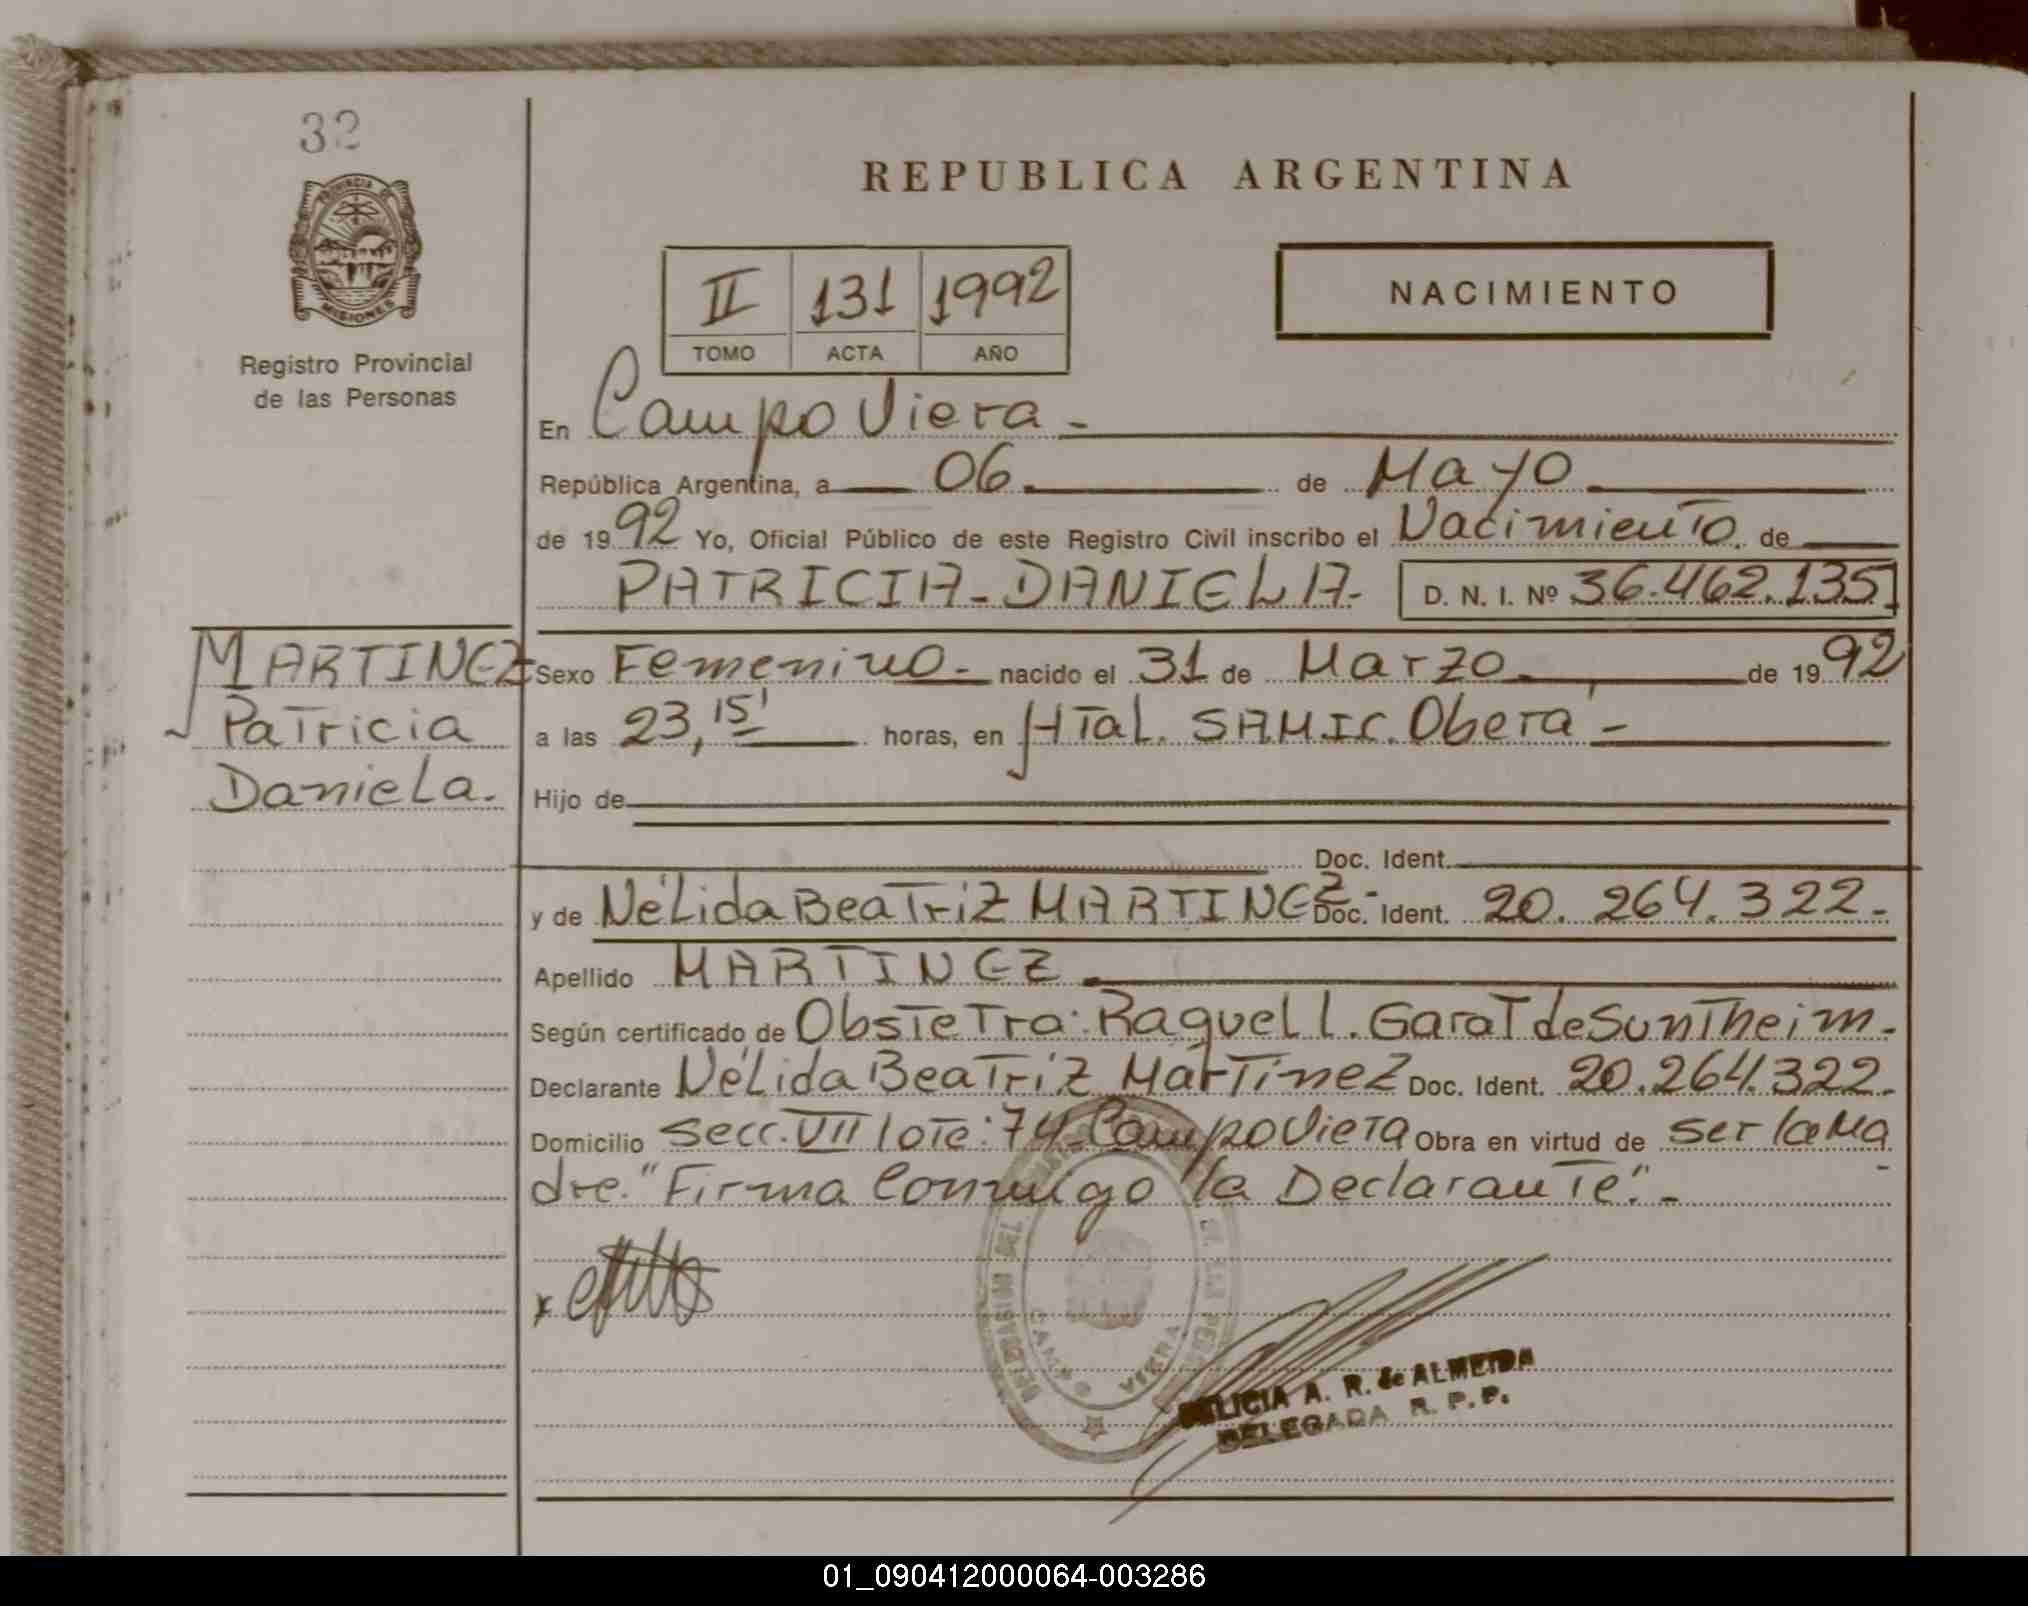 32
PROVINCIA DE
MISIONES
Registro Provincial
de las Personas
REPUBLICA ARGENTINA
II 131 1992
TOMO ACTA AÑO
NACIMIENTO
En Campo Viera -
República Argentina, a 06 de Mayo
de 1992 Yo, Oficial Público de este Registro Civil inscribo el Nacimiento de
PATRICIA-DANIELA- D. N. I. Nº 36.462.135
MARTINEZ
Patricia
Daniela.
Sexo Femenino - nacido el 31 de Marzo de 1992
a las 23,15' horas, en HTal. SAMIC. Oberá -
Hijo de
Doc. Ident.
y de Nélida Beatriz MARTINEZ - Doc. Ident. 20.264.322.-
Apellido MARTINEZ
Según certificado de Obstetra: Raquel l. Garat de Suntheim.-
Declarante Nélida Beatriz Martinez Doc. Ident. 20.264.322.-
Domicilio Secc. VII lote: 74- Campo Viera Obra en virtud de ser la Ma
dre. "Firma Conmigo la Declarante".-
CAMPO VIERA
DELICIA A. R. de ALMEIDA
DELEGADA R. P. P.
01_090412000064-003286